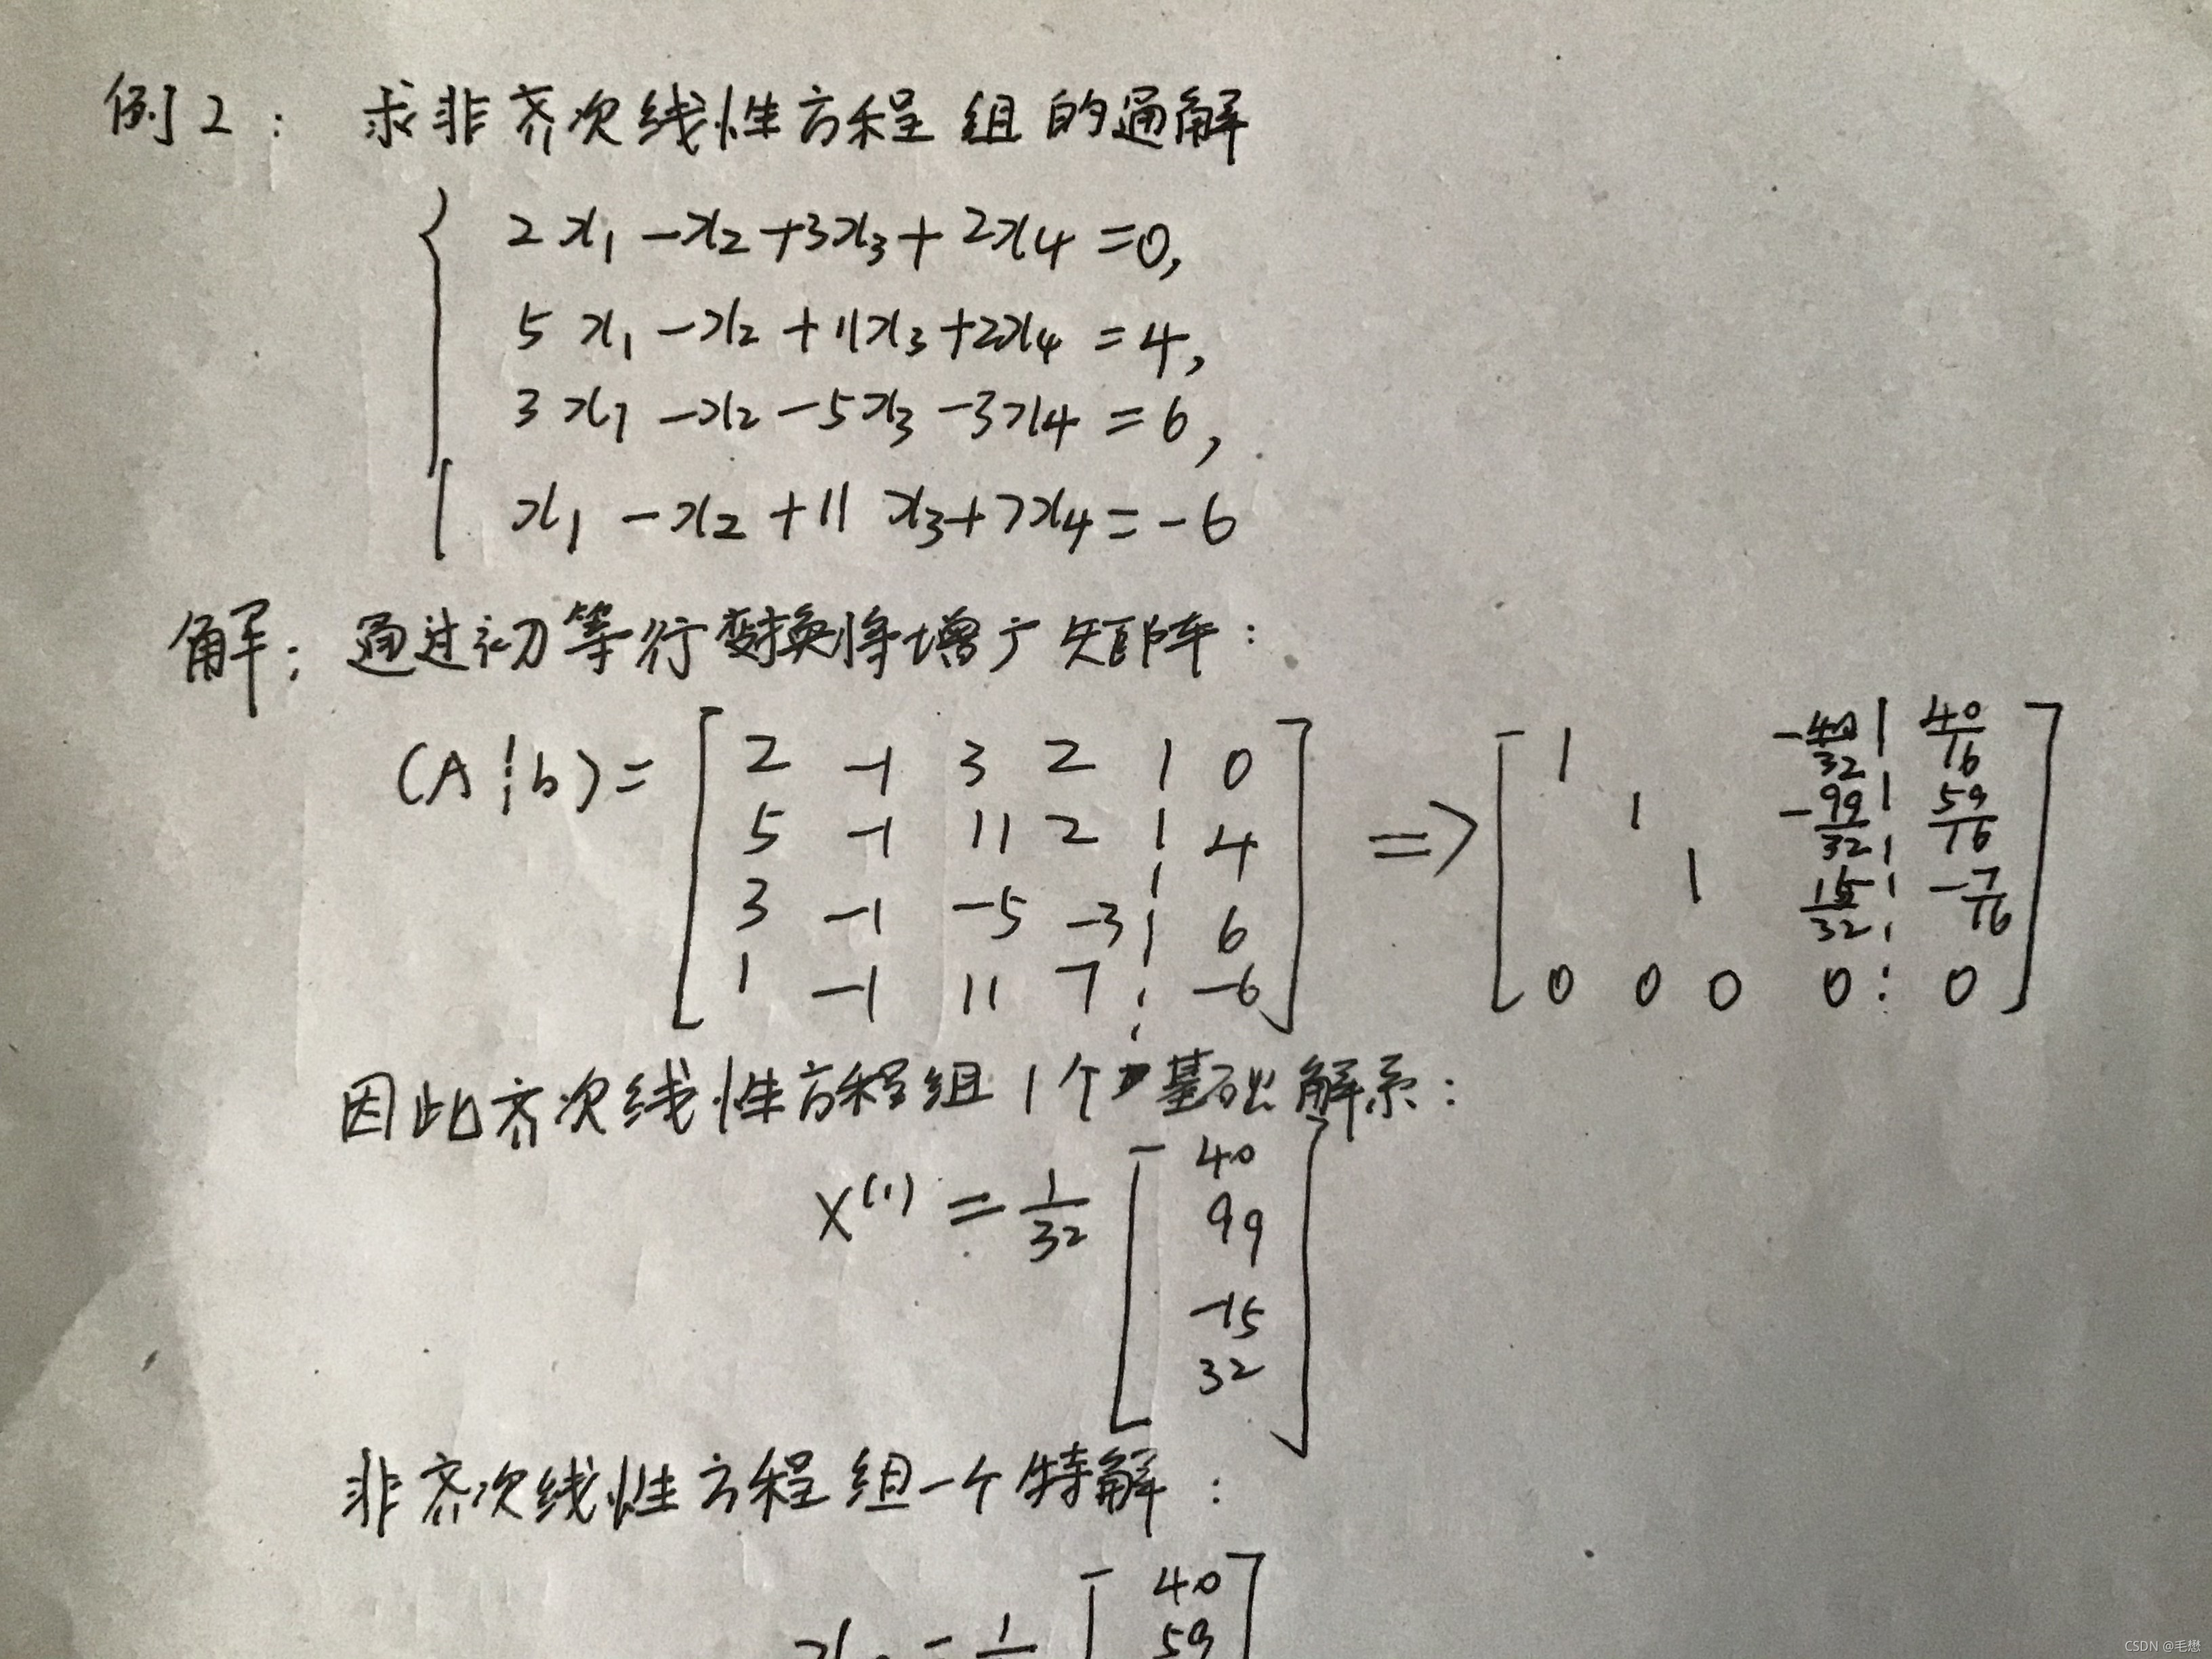 例2: 求非齐次线性方程组的通解
2x₁ -x₂ +3x₃ + 2x₄ =0,
5x₁ -x₂ +11x₃ +2x₄ =4,
3x₁ -x₂ -5x₃ -3x₄ =6,
x₁ -x₂ +11x₃ +7x₄ =-6
解: 通过初等行变换将增广矩阵:
(A ¦ b) = [ 2 -1 3 2 ¦ 0
5 -1 11 2 ¦ 4
3 -1 -5 -3 ¦ 6
1 -1 11 7 ¦ -6 ]
=> [ 1 -40/32 ¦ 40/16
1 -99/32 ¦ 59/16
1 15/32 ¦ -7/16
0 0 0 0 ¦ 0 ]
因此齐次线性方程组1个基础解系:
X⁽¹⁾ = 1/32 [ 40
99
-15
32 ]
非齐次线性方程组一个特解:
= 1 [ 40
59 ]
CSDN @毛懋